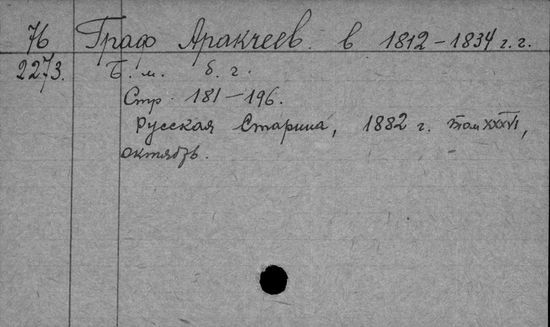 76 Граф Аракчеев. в 1812-1834 г.г.
2273. Б. м. б. г.
Стр. 181-196.
Русская Старина, 1882 г. том XXXVI,
октябрь.